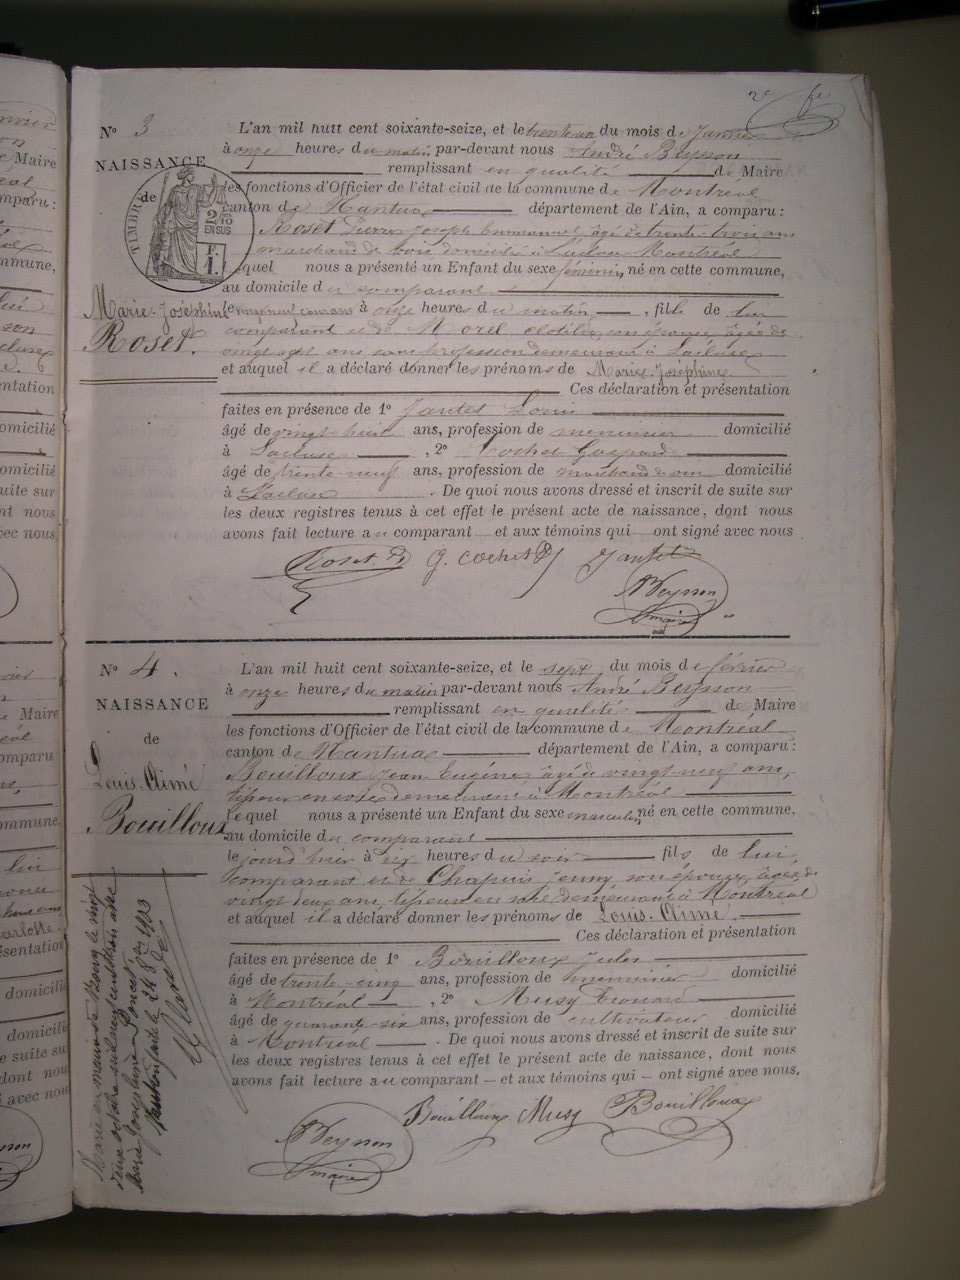 2e fe
N° 3
NAISSANCE
de
TIMBRE
2/10 EN SUS
F. 1.
Marie-Joséphine
Roset.
L'an mil huit cent soixante-seize, et le trente un du mois de Janvier
à onze heures du matin par-devant nous André Beysson
remplissant en qualité de Maire
les fonctions d'Officier de l'état civil de la commune de Montréal
canton de Nantua département de l'Ain, a comparu :
Roset Pierre Joseph Emmanuel âgé de trente-trois ans
marchand de bois domicilié à Lacluse Montréal
lequel nous a présenté un Enfant du sexe féminin, né en cette commune,
au domicile du comparant
le vingt neuf courant à onze heures du matin , fille de lui
comparant et de Morel Clotilde, son épouse, âgée de
vingt sept ans, sans profession demeurant à Lacluse
et auquel il a déclaré donner les prénoms de Marie-Joséphine
Ces déclaration et présentation
faites en présence de 1° Jantet Louis
âgé de vingt huit ans, profession de menuisier domicilié
à Lacluse , 2° Cochet Gaspard
âgé de trente-neuf ans, profession de marchand de vin domicilié
à Lacluse . De quoi nous avons dressé et inscrit de suite sur
les deux registres tenus à cet effet le présent acte de naissance, dont nous
avons fait lecture au comparant et aux témoins qui ont signé avec nous
Roset G. Cochet Jantet
Beysson
maire
N° 4.
NAISSANCE
de
Louis-Aimé
Bouilloux
L'an mil huit cent soixante-seize, et le sept du mois de février
à onze heures du matin par-devant nous André Beysson
remplissant en qualité de Maire
les fonctions d'Officier de l'état civil de la commune de Montréal
canton de Nantua département de l'Ain, a comparu :
Bouilloux Jean Eugène âgé de vingt-neuf ans,
tisseur en soie demeurant à Montréal
lequel nous a présenté un Enfant du sexe masculin, né en cette commune,
au domicile du comparant
le jourd'hier à six heures du soir fils de lui,
comparant et de Chapuis Jenny son épouse, âgée de
vingt deux ans, tisseuse en soie demeurant à Montréal
et auquel il a déclaré donner les prénoms de Louis-Aimé.
Ces déclaration et présentation
faites en présence de 1° Bouilloux Jules
âgé de trente-cinq ans, profession de domicilié
à Montréal , 2° Musy Edouard
âgé de quarante-six ans, profession de cultivateur domicilié
à Montréal . De quoi nous avons dressé et inscrit de suite sur
les deux registres tenus à cet effet le présent acte de naissance, dont nous
avons fait lecture au comparant – et aux témoins qui – ont signé avec nous.
Bouilloux Musy Bouilloux
Beysson
maire
Marié en mairie de le vingt
deux octobre mil neuf cent trois avec
Marie Joséphine Poncet
Mention faite le 24 8bre 1903